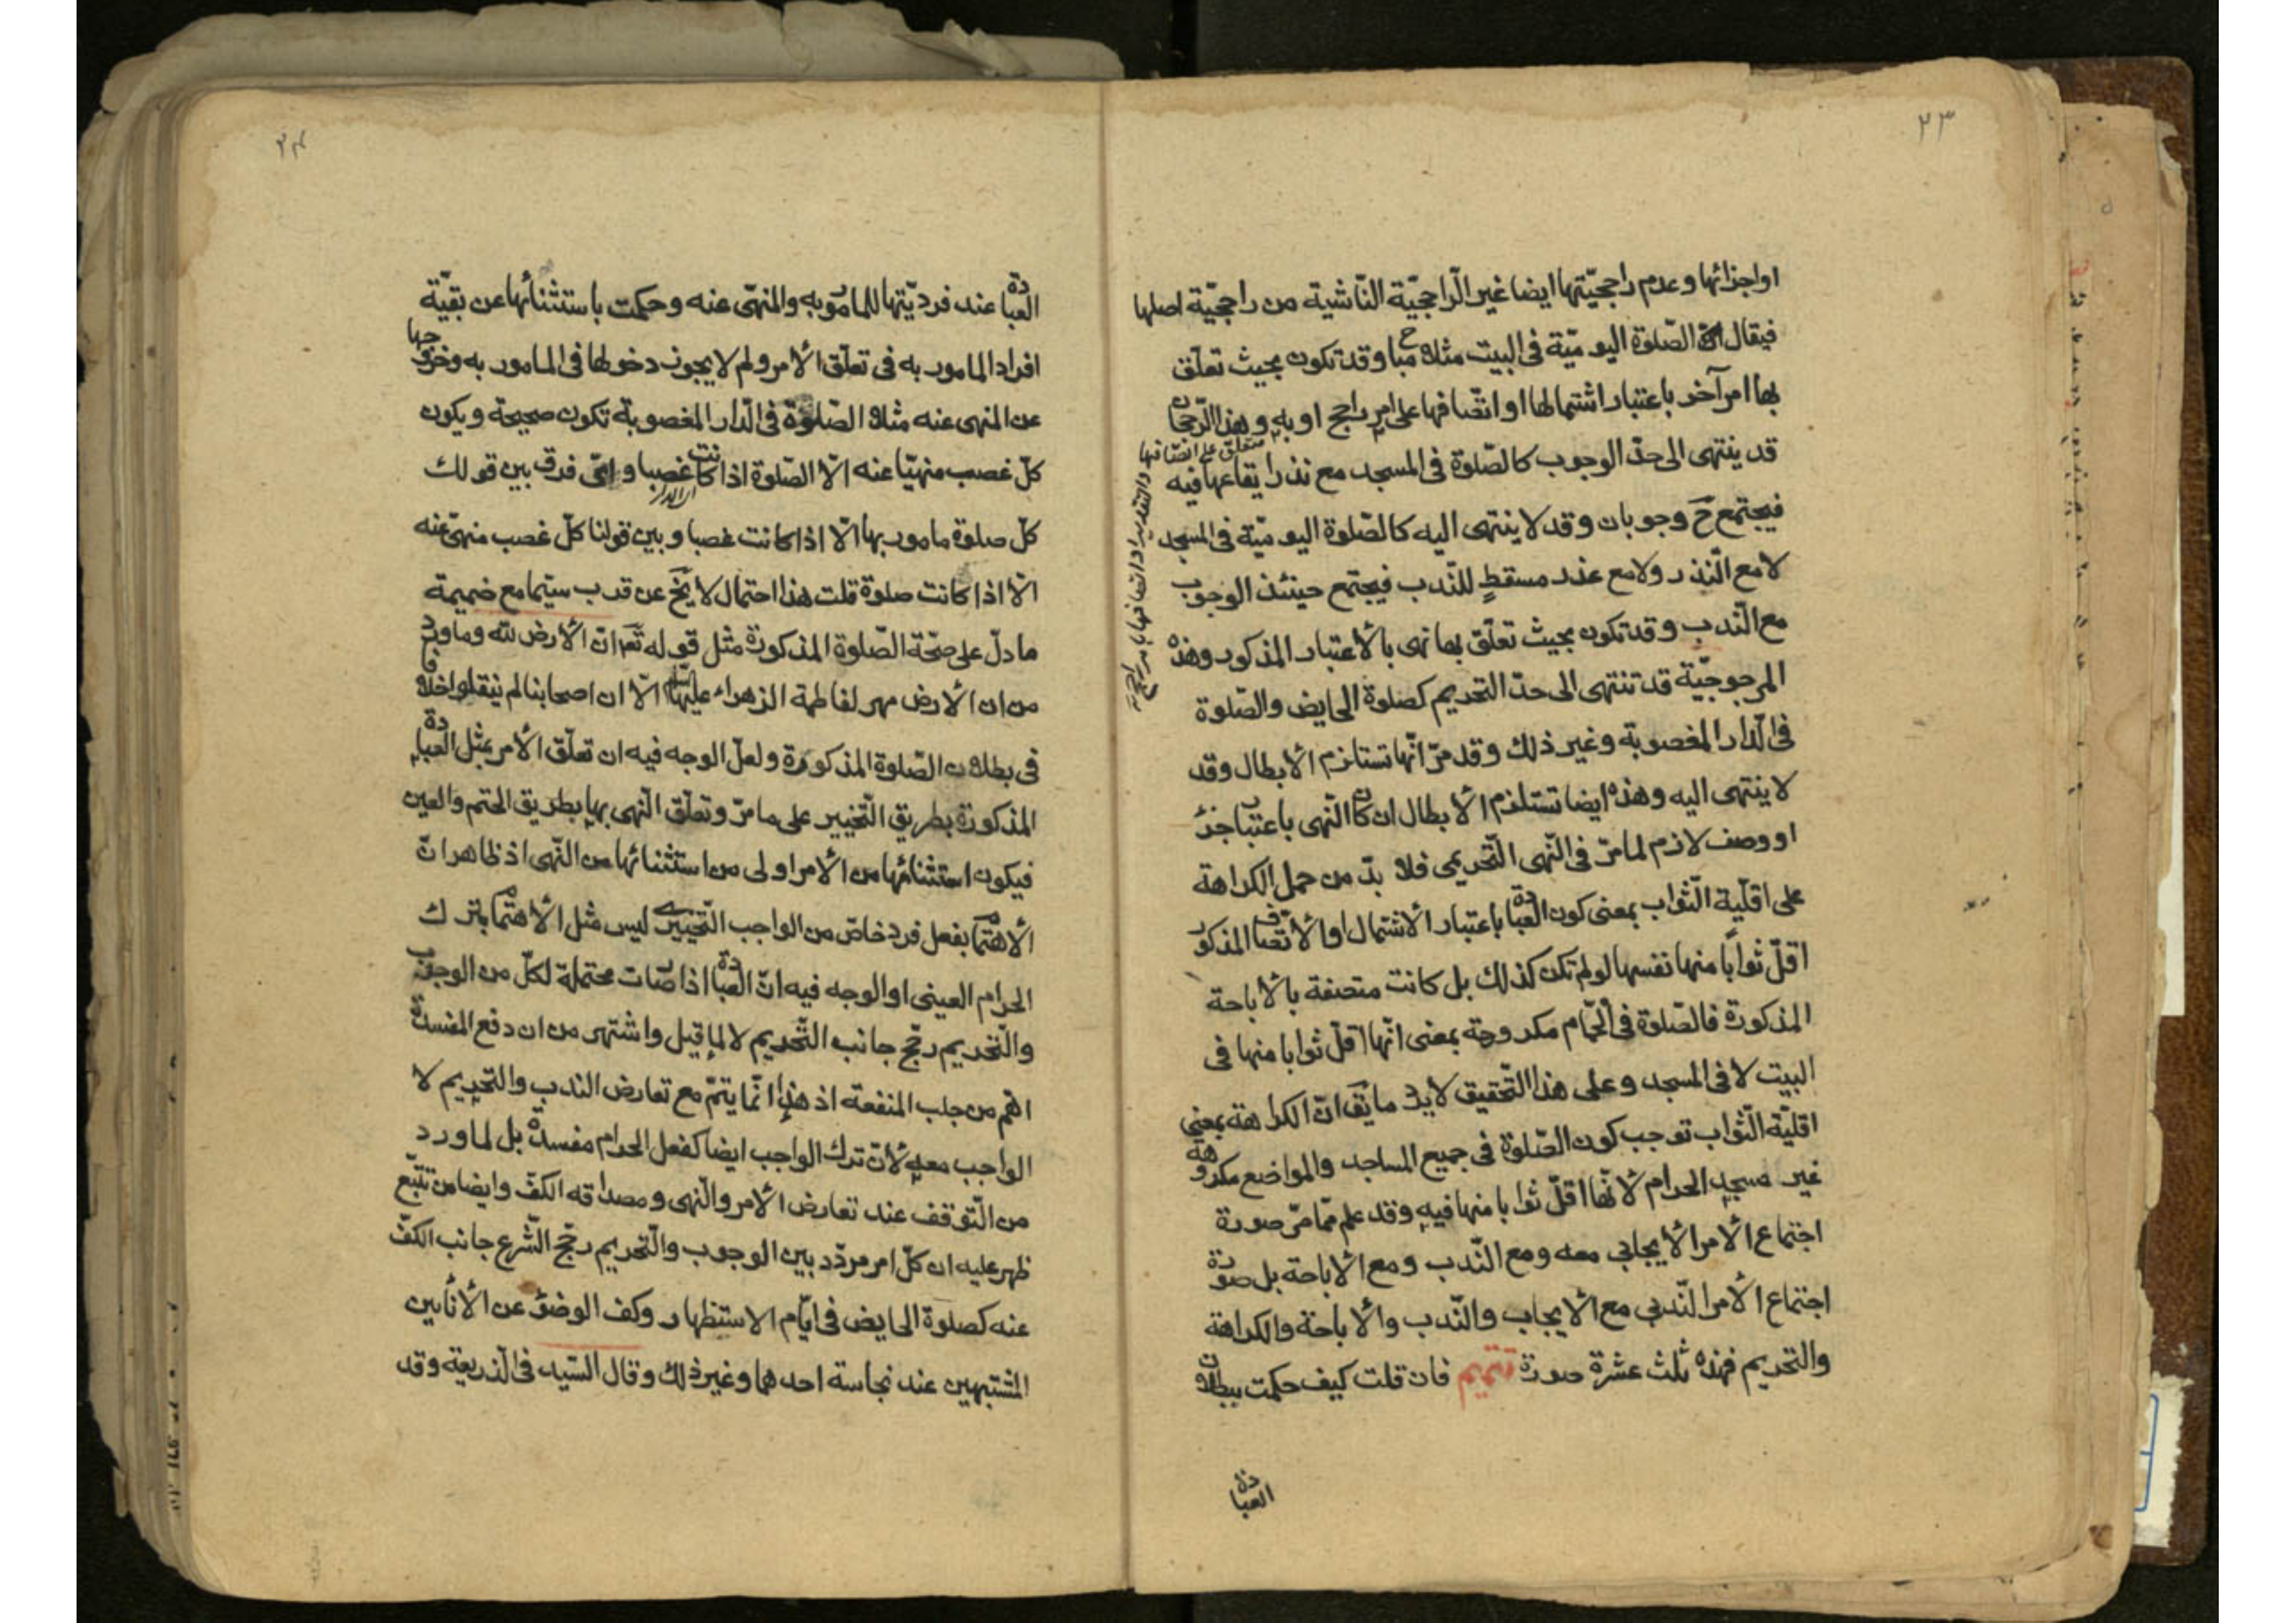 ٢٣
اواجزائها وعدم راجحيّتها ايضا غير الرّاجحيّة النّاشية من راجحيّة اصلها
فيقال الصّلوة اليوميّة في البيت مثلا مباح وقد تكون بحيث تعلّق
بها امر آخر باعتبار اشتمالها او اتّصافها على امر راجح او به وهذا الرّجحان
قد ينتهى الى حدّ الوجوب كالصّلوة في المسجد مع نذر ايقاعها فيه
فيجتمع ح وجوبان وقد لا ينتهى اليه كالصّلوة اليوميّة في المسجد
لا مع النّذر ولا مع عذر مسقطٍ للنّدب فيجتمع حينئذ الوجوب
مع النّدب وقد تكون بحيث تعلّق بها نهى بالأعتبار المذكور وهذه
المرجوحيّة قد تنتهى الى حدّ التحريم كصلوة الحايض والصّلوة
في الدّار المغصوبة وغير ذلك وقد مرّ انّها تستلزم الأبطال وقد
لا ينتهى اليه وهذه ايضا تستلزم الأبطال ان كان النّهى باعتبار جزء
او وصف لازم لما مرّ في النّهى التّحريمى فلا بدّ من حمل الكراهة
على اقلّية الثّواب بمعنى كون العبادة باعتبار الأشتمال او الأتّصاف المذكور
اقلّ ثوابًا منها نفسها لو لم تكن كذلك بل كانت متصفة بالأباحة
المذكورة فالصّلوة في الحمّام مكروهة بمعنى انّها اقلّ ثوابا منها في
البيت لا في المسجد وعلى هذا التّحقيق لا يرد ما يقَ انّ الكراهة بمعنى
اقليّة الثّواب توجب كون الصّلوة في جميع المساجد والمواضع مكروهة
غير مسجد الحرام لأنّها اقلّ ثوابا منها فيه وقد علم ممّا مرّ صورة
اجتماع الأمر الأيجابى معه ومع النّدب ومع الأباحة بل صورة
اجتماع الأمر النّدبى مع الأيجاب والنّدب والأباحة والكراهة
والتحريم فهذه ثلث عشرة صورة تتميم فان قلت كيف حكمت ببطلان
العبادة
متعلق على اتصافها
٢٤
العبادة عند فرديّتها للمأمور به والمنهّى عنه وحكمت باستثنائها عن بقيّة
افراد المامور به في تعلّق الأمر ولم لا يجوز دخولها في المامور به وخروجها
عن المنهى عنه مثلا الصّلوة في الدّار المغصوبة تكون صحيحة ويكون
كلّ غصب منهيّا عنه الّا الصّلوة اذا كانت غصبا واىّ فرق بين قولك
كلّ صلوة مامور بها الّا اذا كانت غصبا وبين قولنا كلّ غصب منهىّ عنه
الّا اذا كانت صلوة قلت هذا احتمال لا يخ عن قرب سيّما مع ضميمة
ما دلّ على صحّة الصّلوة المذكورة مثل قوله تعَ انّ الأرض لله وما ورد
من ان الأرض مهر لفاطمة الزهراء عليها السلم الّا ان اصحابنا لم ينقلوا خلافا
في بطلان الصّلوة المذكورة ولعلّ الوجه فيه ان تعلّق الأمر بمثل العبادة
المذكورة بطريق التّخيير على ما مرّ وتعلّق النّهى بها بطريق الحتم والعين
فيكون استثنائها من الأمر اولى من استثنائها من النّهى اذ ظاهر انّ
الأهتمام بفعل فرد خاصّ من الواجب التّخييرى ليس مثل الأهتمام بترك
الحرام العينى او الوجه فيه انّ العبادة اذا صارت محتملة لكلّ من الوجوب
والتّحريم رجّح جانب التّحريم لا لما قيل واشتهر من ان دفع المفسدة
اهمّ من جلب المنفعة اذ هذا انّما يتمّ مع تعارض الندب والتحريم لا
الواجب معه لأنّ ترك الواجب ايضا كفعل الحرام مفسدة بل لما ورد
من التّوقف عند تعارض الأمر والنّهى ومصداقه الكفّ وايضا من تتبّع
ظهر عليه ان كلّ امر مردّد بين الوجوب والتّحريم رجّح الشّرع جانب الكفّ
عنه كصلوة الحايض في ايّام الاستظهار وكف الوضوء عن الأنائين
المشتبهين عند نجاسة احدهما وغير ذلك وقال السّيد في الذريعة وقد